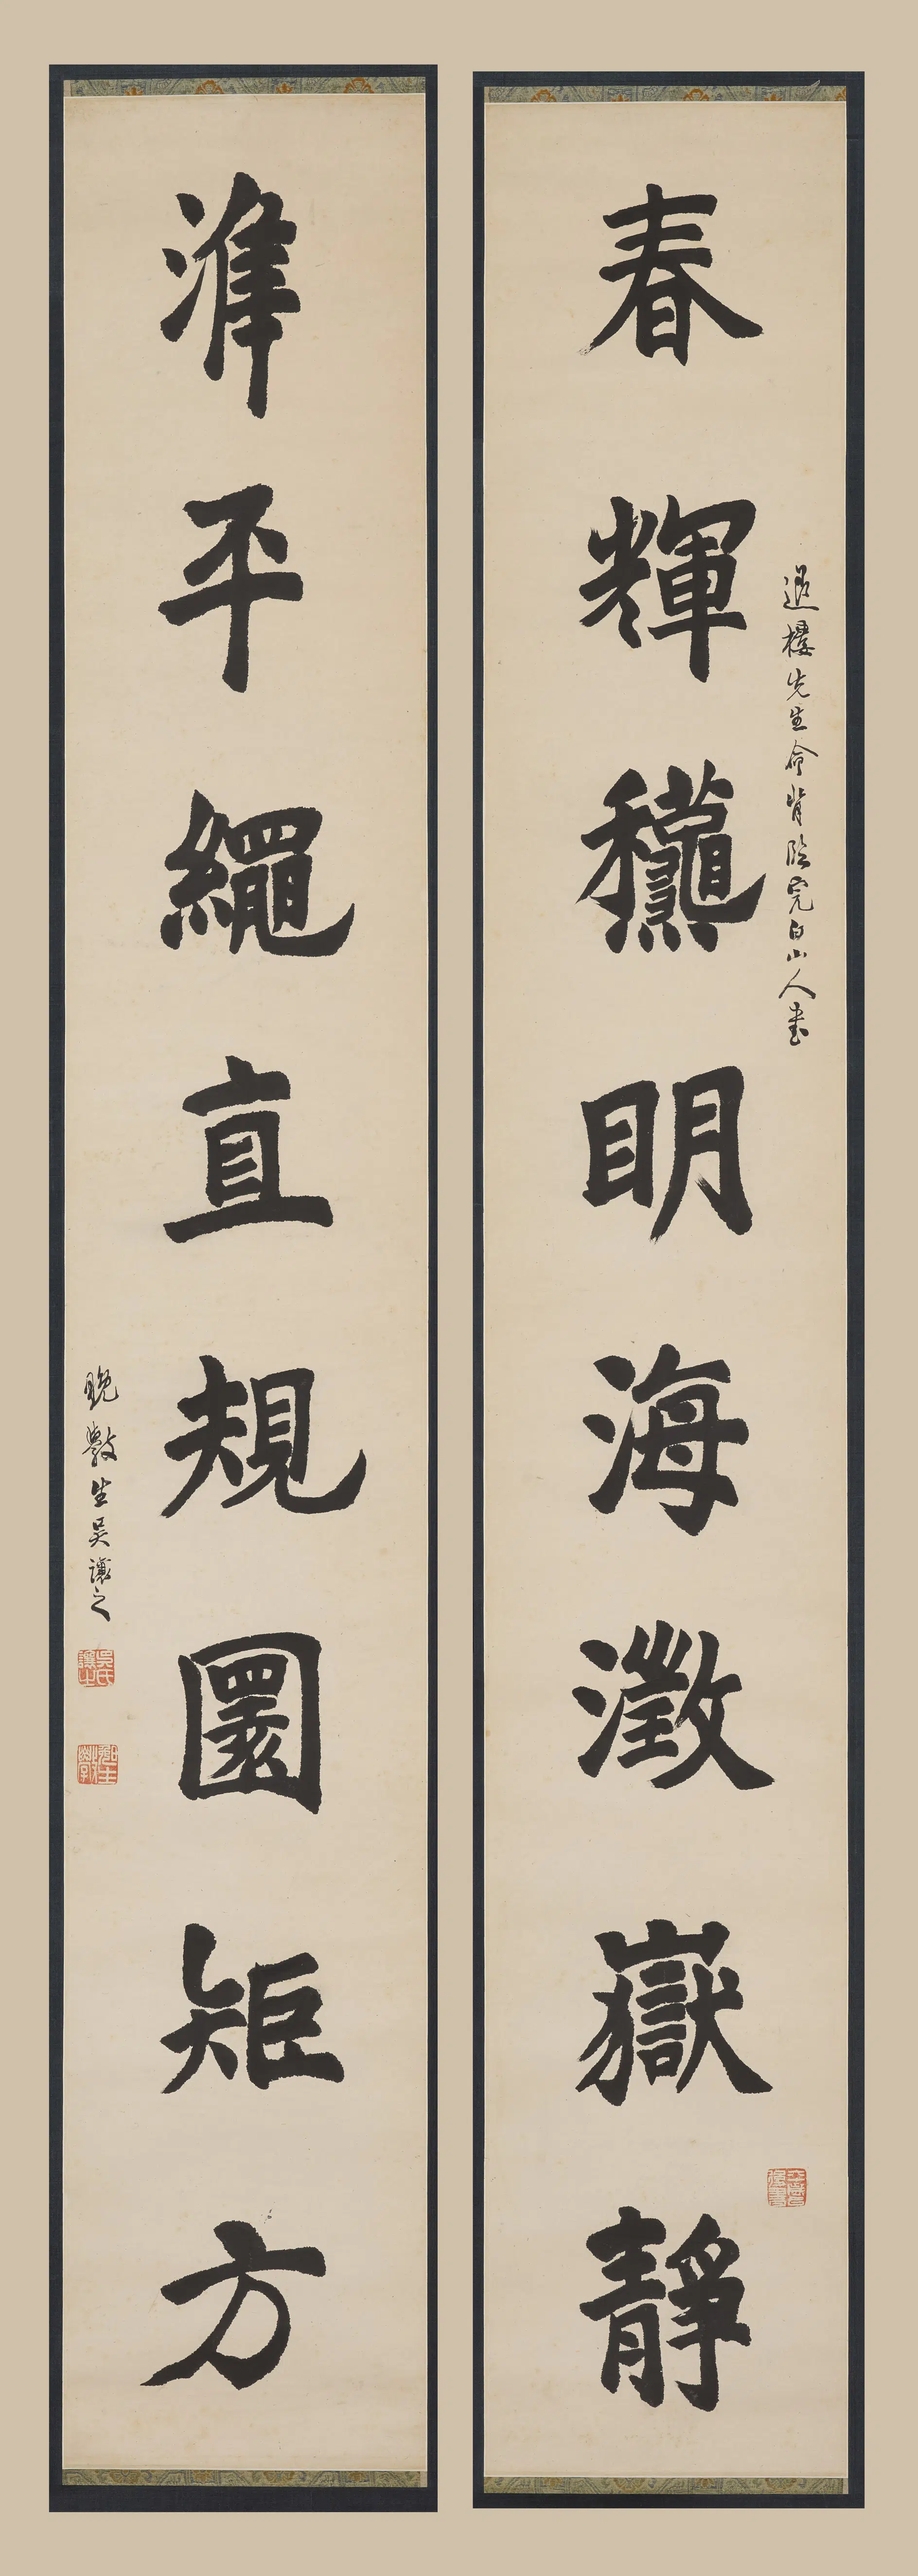 退樓先生命背臨完白山人書
春輝龝眀海澂嶽靜
準平繩直規圜矩方
晚斅生吳讓之
吳氏讓之